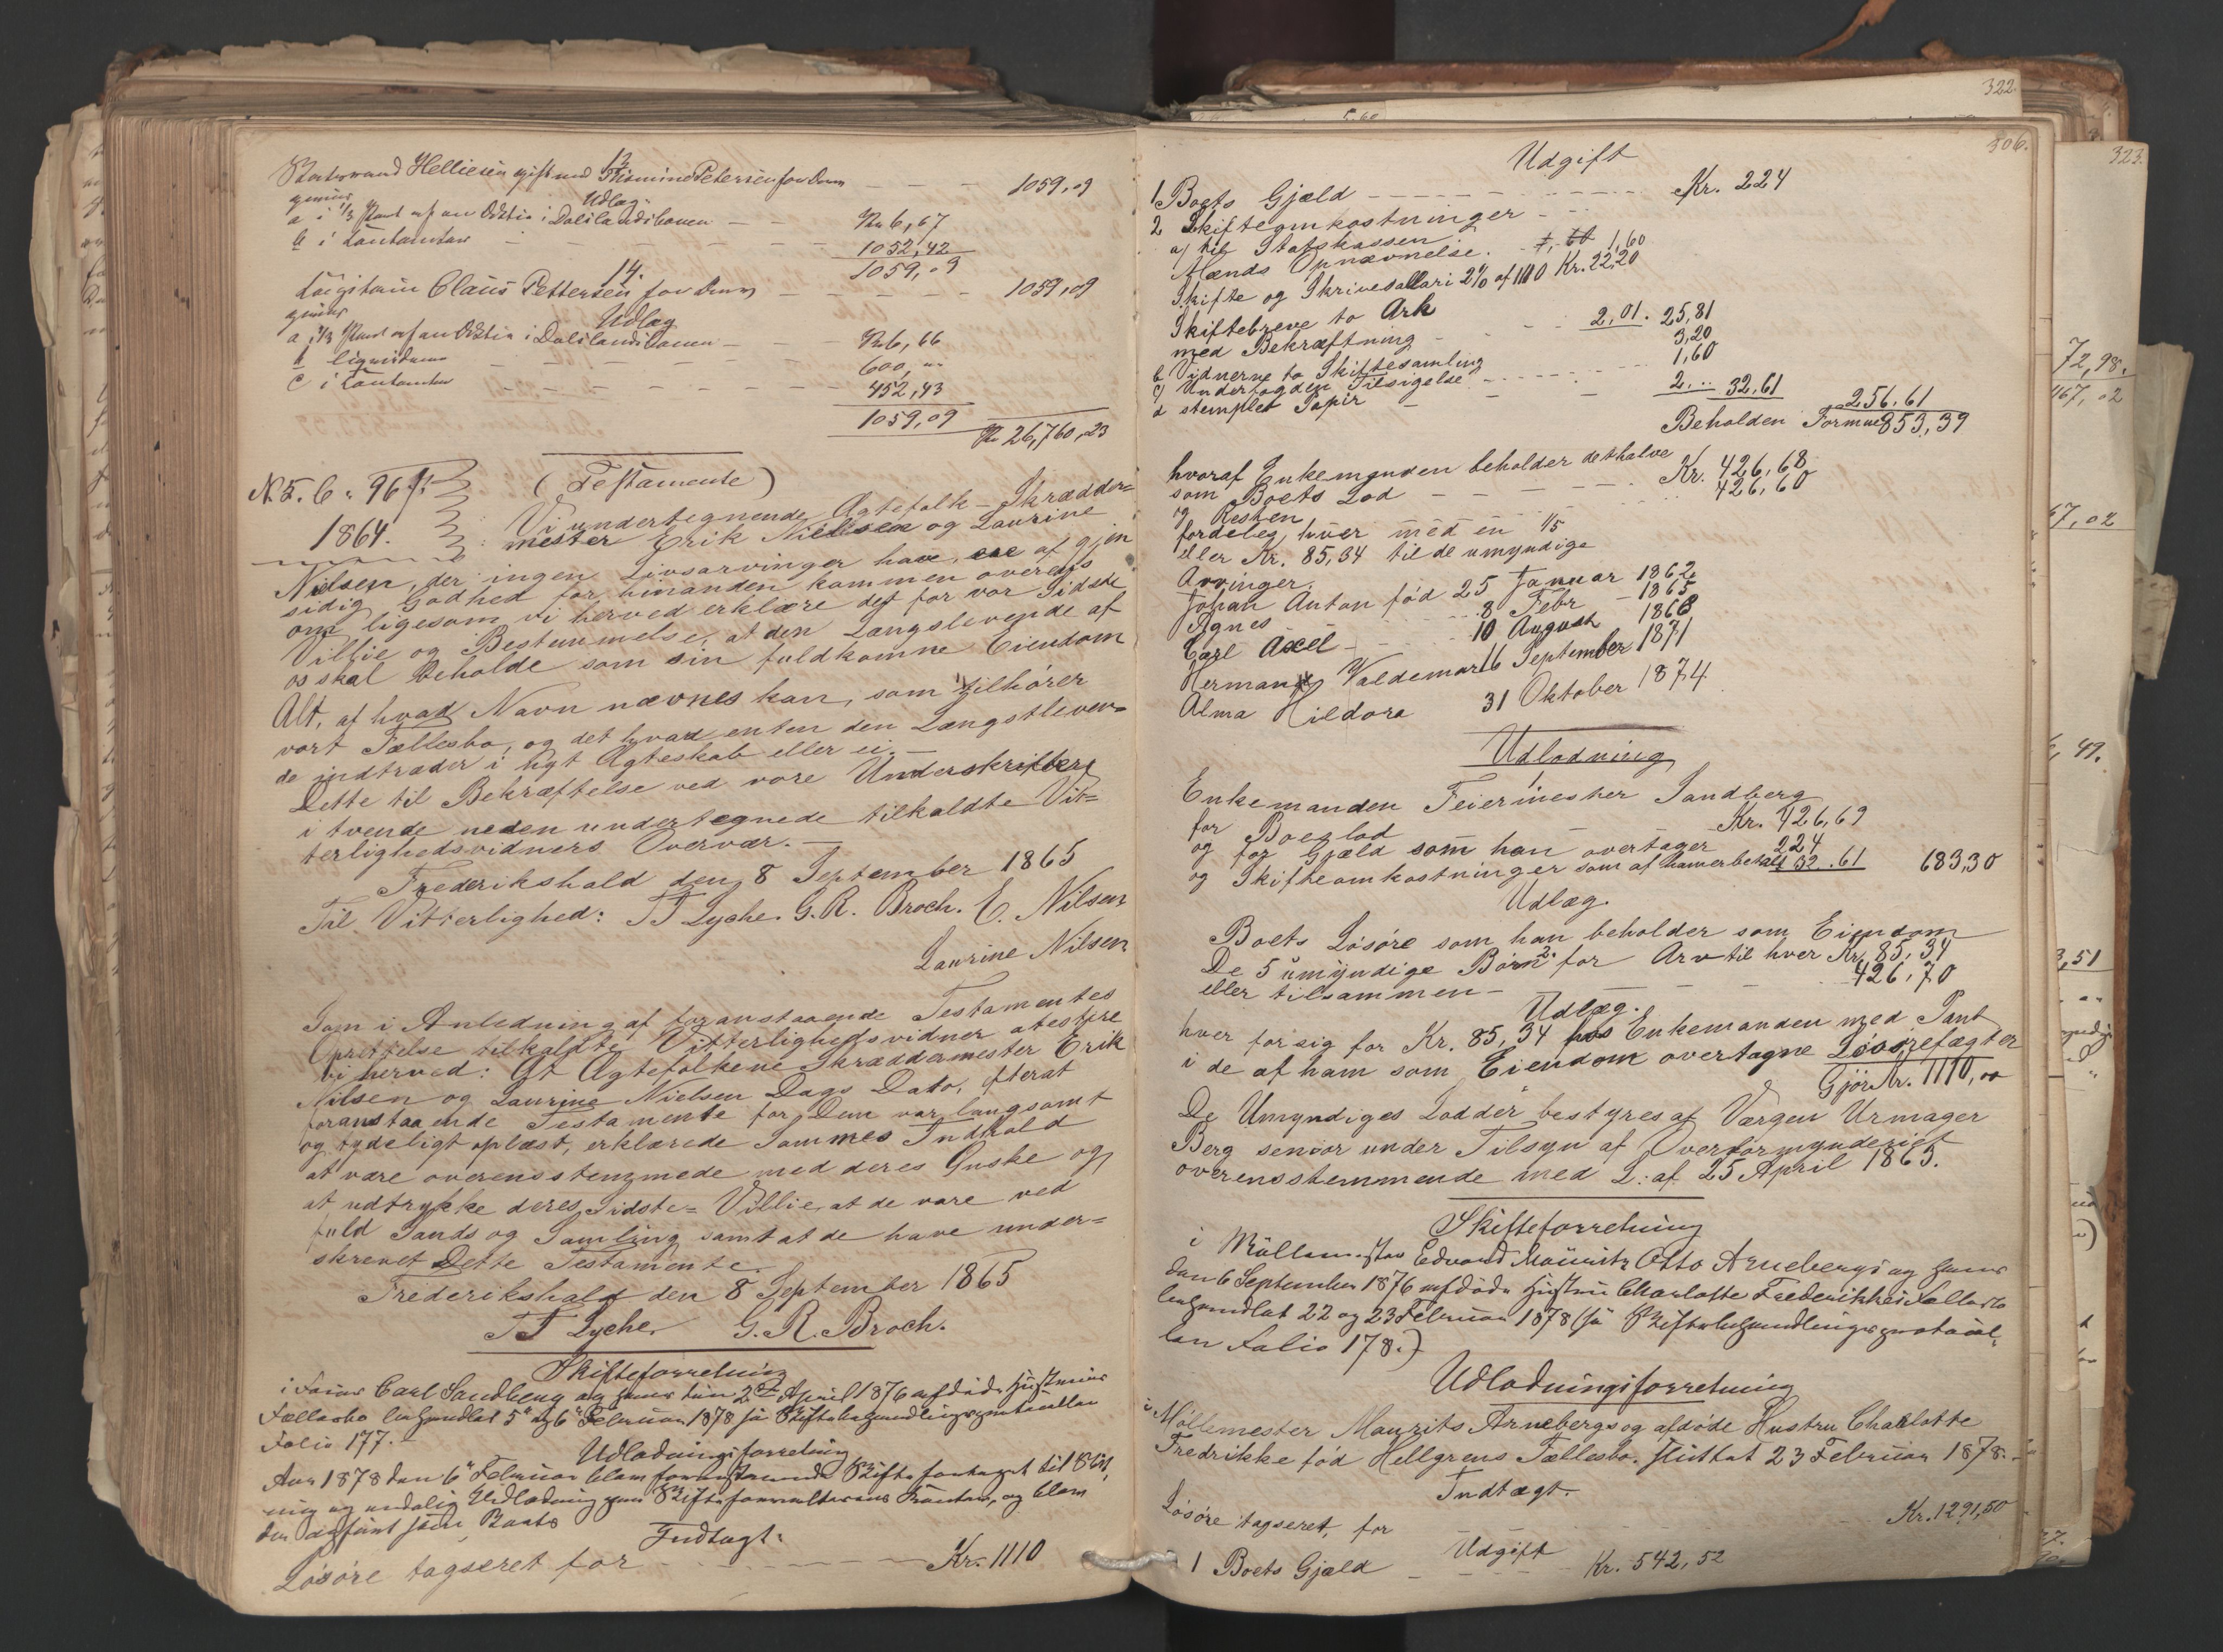 13
Helliesen gift med Thomine Petersen for Dem
1059,09
Udlæg.
a i 1/3 Part af en Aktie i Dalslandsbanen — — Kr 6,67
b i Contanter — — — 1052,42
1059,09
14.
Claus Pettersen for Dem — — — 1059,09
Udlæg
a i 1/3 Part af en Aktie i Dalslandsbanen — — Kr 6,66
b — — 600, "
c i Contanter — — — 452,43
1059,09
Kr 26,760,23
(Testamente)
1864.
Vi undertegnende Agtefolk – Skrædder=
mester Erik Nielsen og Laurine
Nielsen, der ingen Livsarvinger have, ere af gjen
sidig Godhed for hinanden kommen overens
om, ligesom vi herved erklære det for vor Sidste
Villie og Bestemmelse, at den Længstlevende af
os skal beholde som sin fuldkomne Eiendom
Alt, af hvad Navn nævnes kan, som tilhører
vort Fællesbo, og det hvad enten den Længstleven=
de indtræder i nyt Ægteskab eller ei. —
Dette til Bekræftelse ved vore Underskrifter
i tvende neden undertegnede tilkaldte Vit=
terlighedsvidners Overvær. —
Frederikshald den 8 September 1865
Til Vitterlighed: TF Lyche. G. R. Broch. E. Nilsen
Laurine Nilsen
Som i Anledning af foranstaaende Testamentes
Oprettelse tilkaldte Vitterlighedsvidner atestere
vi herved: At Agtefolkene Skræddermester Erik
Nilsen og Laurine Nielsen Dags Dato, efterat
foranstaaende Testamente for Dem var langsomt
og tydeligt oplæst, erklærede Sammes Indhold
at være overensstemmede med deres Ønske og
at udtrykke deres Sidste= Villie, at de vare ved
fuld Sands og Samling samt at de have under=
skrevet Dette Testamente.
Frederikshald den 8 September 1865
TF Lyche. G. R. Broch.
Skifteforretning
i Feier Carl Sandberg og hans den 2den April 1876 afdøde Hustrues
Fællesbo behandlet 5te og 6te Februar 1878 se Skiftebehandlingsprotocollen
Folio 177. —
Udlodningsforretning
Aar 1878 den 6te Februar blev foranstaaende Skifte foretaget til Slut
ning og endelig Udlodning paa Skifteforvalterens Kontor, og blev
Boets
Indtægt.
Løsøre tagseret for — — — Kr. 1110
322.
306.
323.
Udgift
1 Boets Gjæld — — — Kr. 224
2 Skifteomkostninger — —
a) til Statskassen
Mænds Opnævnelse. — 1,60
Skifte og Skrivesallari 2% af 1110 Kr. 22,20
Skiftebreve to Ark
med Bekræftning — — 2,01. 25,81
b Vidnerne to Skiftesamling 3,20
c) Underfogden Tilsigelse — — 1,60
d stemplet Papir — — 2... 32,61 256,61
Beholden Formue 853,39
hvoraf Enkemanden beholder det halve
som Boets Lod — — — Kr. 426,68
og Resten 426,60
fordeles, hver med en 1/5
eller Kr. 85,34 til de umyndige
Arvinger.
Johan Anton fød 25 Januar 1862
Agnes — 8 Febr — 1865
Carl Axel — 10 August 1868
Herman Valdemar 16 September 1871
Alma Hildora 31 Oktober 1874
Udlodning
1
Enkemanden Feiermester Sandberg
for Boeslod — Kr. 426,69
og for Gjæld som han overtager 224
og Skifteomkostninger som af ham er betalt 32.61 683,30
Udlæg.
Boets Løsøre som han beholder som Eiendom
2.
De 5 umyndige Børn for Arv til hver Kr. 85,34
eller tilsammen — — — 426,70
Udlæg.
hver for sig for Kr. 85,34 hos Enkemanden med Pant
i de af ham som Eiendom overtagne Løsørefægter
Gjør Kr. 1110,00
De Umyndiges Lodder bestyres af Værgen Urmager
Berg senior under Tilsyn af Overformynderiet
overensstemmende med L. af 25 April 1863.
Skifteforretning
i Møllemester Edvard Mauritz Otto Arnebergs og hans
den 6 September 1876 afdøde Hustru Charlotte Frederikkes Fællesbo
behandlet 22 og 23 Februar 1878 (se Skiftebehandlingsprotocol=
len Folio 178.)
Udlodningsforretning
i Møllemester Maurits Arnebergs og afdøde Hustru Charlotte
Fredrikke fød Hellgrens Fællesbo. sluttet 23 Februar 1878. —
Indtægt.
Løsøre tagseret, for — — — Kr. 1291,50
Udgift
1 Boets Gjæld — — — Kr. 542,52
72,98.
467,02
67,02
49.
3,51